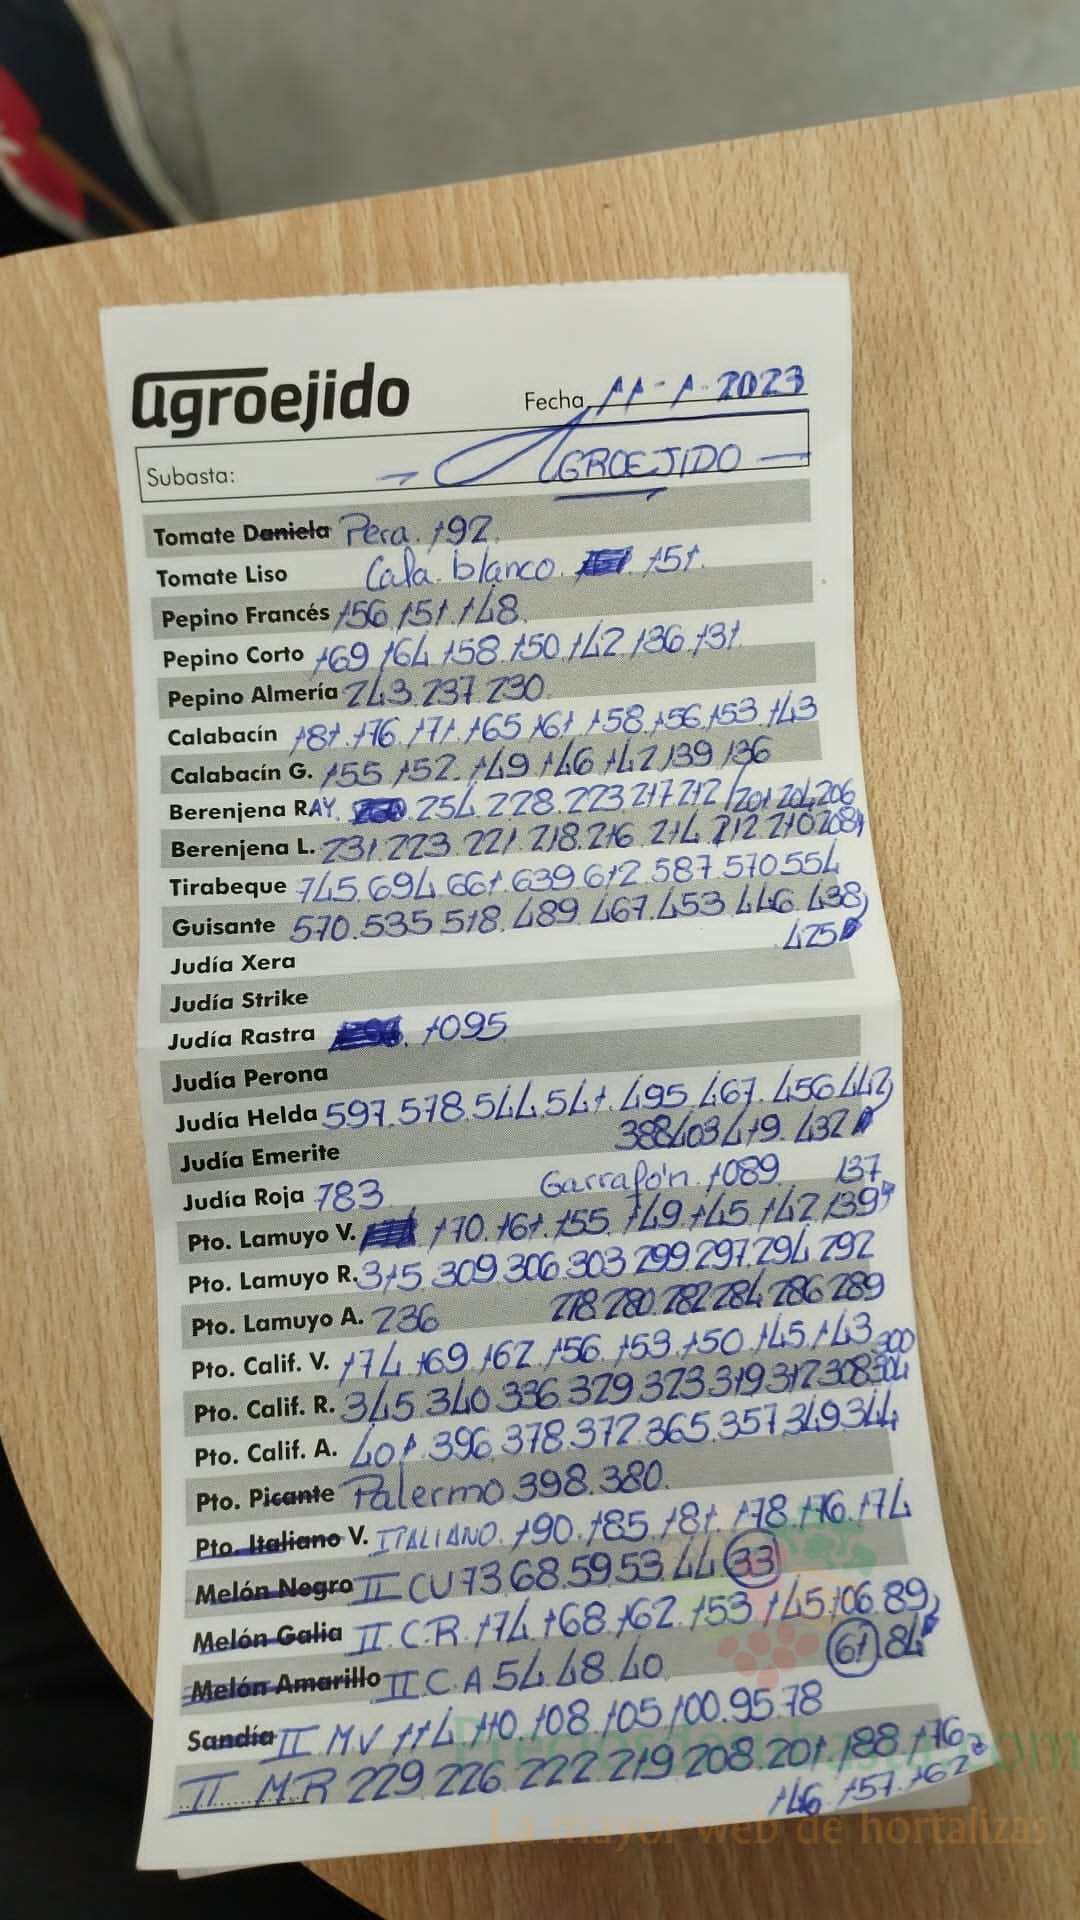 agroejido
Fecha 11-1-2023
Subasta: AGROEJIDO
Tomate Daniela Pera. 192.
Tomate Liso Cala. blanco. 151.
Pepino Francés 156.151.148.
Pepino Corto 169.164.158.150.142.136.131.
Pepino Almería 243.237.230.
Calabacín 181.176.171.165.161.158.156.153.143
Calabacín G. 155.152.149.146.142.139.136
Berenjena RAY. 254.228.223.217.212/201.204.206
Berenjena L. 231.223.221.218.216.214.212.210.208
Tirabeque 745.694.661.639.612.587.570.554
Guisante 570.535.518.489.467.453.446.438
425
Judía Xera
Judía Strike
Judía Rastra 1095
Judía Perona
Judía Helda 597.578.544.541.495.467.456.442
Judía Emerite 388.403.419.432
Judía Roja 783 Garrafón. 1089 137
Pto. Lamuyo V. 170.161.155.149.145.142.139
Pto. Lamuyo R. 315.309.306.303.299.297.294.292
Pto. Lamuyo A. 236 278.280.282.284.286.289
Pto. Calif. V. 174.169.162.156.153.150.145.143
300
Pto. Calif. R. 345.340.336.329.323.319.312.308.304
Pto. Calif. A. 401.396.378.372.365.357.349.344
Pto. Picante Palermo 398.380.
Pto. Italiano V. ITALIANO. 190.185.181.178.176.174
Melón Negro II CU 73.68.59.53.44 33
Melón Galia II C.R. 174.168.162.153.145.106.89
Melón Amarillo II C A 54.48.40 61.84
Sandía II MV 114.110.108.105.100.95.78
II MR 229.226.222.219.208.201.188.176
146.157.162
La mayor web de hortalizas